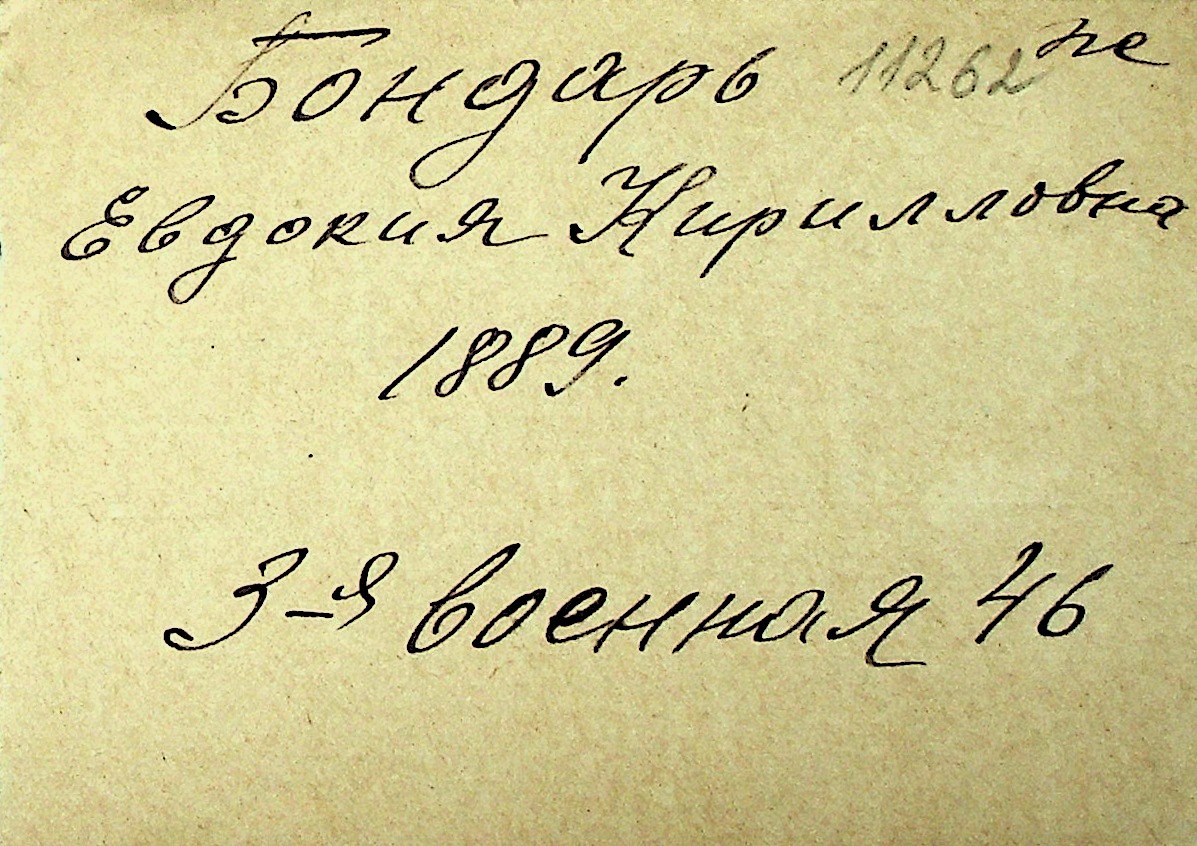 Бондарь 11262 пе
Евдокия Кирилловна
1889.
3-я военная 46